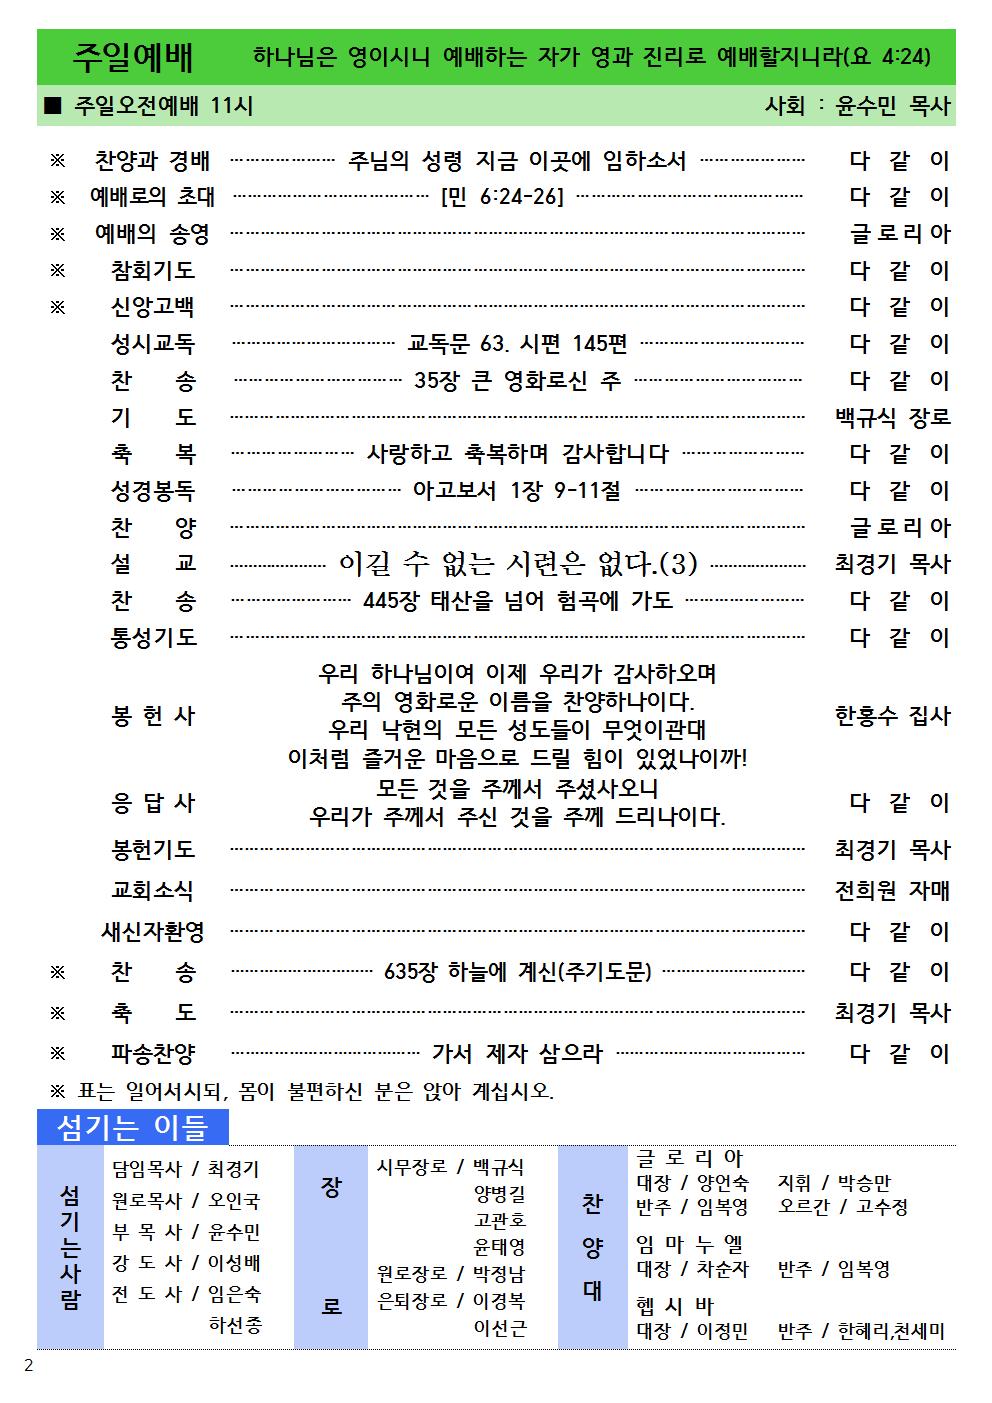 주일예배 하나님은 영이시니 예배하는 자가 영과 진리로 예배할지니라(요 4:24)
■ 주일오전예배 11시 사회 : 윤수민 목사
※ 찬양과 경배 ………………… 주님의 성령 지금 이곳에 임하소서 ………………… 다 같 이
※ 예배로의 초대 ………………………………… [민 6:24-26] ……………………………………… 다 같 이
※ 예배의 송영 …………………………………………………………………………………… 글로리아
※ 참회기도 …………………………………………………………………………………… 다 같 이
※ 신앙고백 …………………………………………………………………………………… 다 같 이
성시교독 …………………………… 교독문 63. 시편 145편 …………………………… 다 같 이
찬 송 …………………………… 35장 큰 영화로신 주 …………………………… 다 같 이
기 도 …………………………………………………………………………………… 백규식 장로
축 복 …………………… 사랑하고 축복하며 감사합니다 …………………… 다 같 이
성경봉독 …………………………… 야고보서 1장 9-11절 …………………………… 다 같 이
찬 양 …………………………………………………………………………………… 글로리아
설 교 ………………… 이길 수 없는 시련은 없다.(3) ………………… 최경기 목사
찬 송 …………………… 445장 태산을 넘어 험곡에 가도 …………………… 다 같 이
통성기도 …………………………………………………………………………………… 다 같 이
우리 하나님이여 이제 우리가 감사하오며
주의 영화로운 이름을 찬양하나이다.
봉 헌 사 우리 낙현의 모든 성도들이 무엇이관대 한홍수 집사
이처럼 즐거운 마음으로 드릴 힘이 있었나이까!
모든 것을 주께서 주셨사오니
응 답 사 우리가 주께서 주신 것을 주께 드리나이다. 다 같 이
봉헌기도 …………………………………………………………………………………… 최경기 목사
교회소식 …………………………………………………………………………………… 전희원 자매
새신자환영 …………………………………………………………………………………… 다 같 이
※ 찬 송 ………………………… 635장 하늘에 계신(주기도문) ………………………… 다 같 이
※ 축 도 …………………………………………………………………………………… 최경기 목사
※ 파송찬양 ………………………………… 가서 제자 삼으라 ………………………………… 다 같 이
※ 표는 일어서시되, 몸이 불편하신 분은 앉아 계십시오.
섬기는 이들
섬기는사람
담임목사 / 최경기
원로목사 / 오인국
부 목 사 / 윤수민
강 도 사 / 이성배
전 도 사 / 임은숙
하선종
장 로
시무장로 / 백규식
양병길
고관호
윤태영
원로장로 / 박정남
은퇴장로 / 이경복
이선근
찬 양 대
글 로 리 아
대장 / 양언숙 지휘 / 박승만
반주 / 임복영 오르간 / 고수정
임 마 누 엘
대장 / 차순자 반주 / 임복영
헵 시 바
대장 / 이정민 반주 / 한혜리,천세미
2